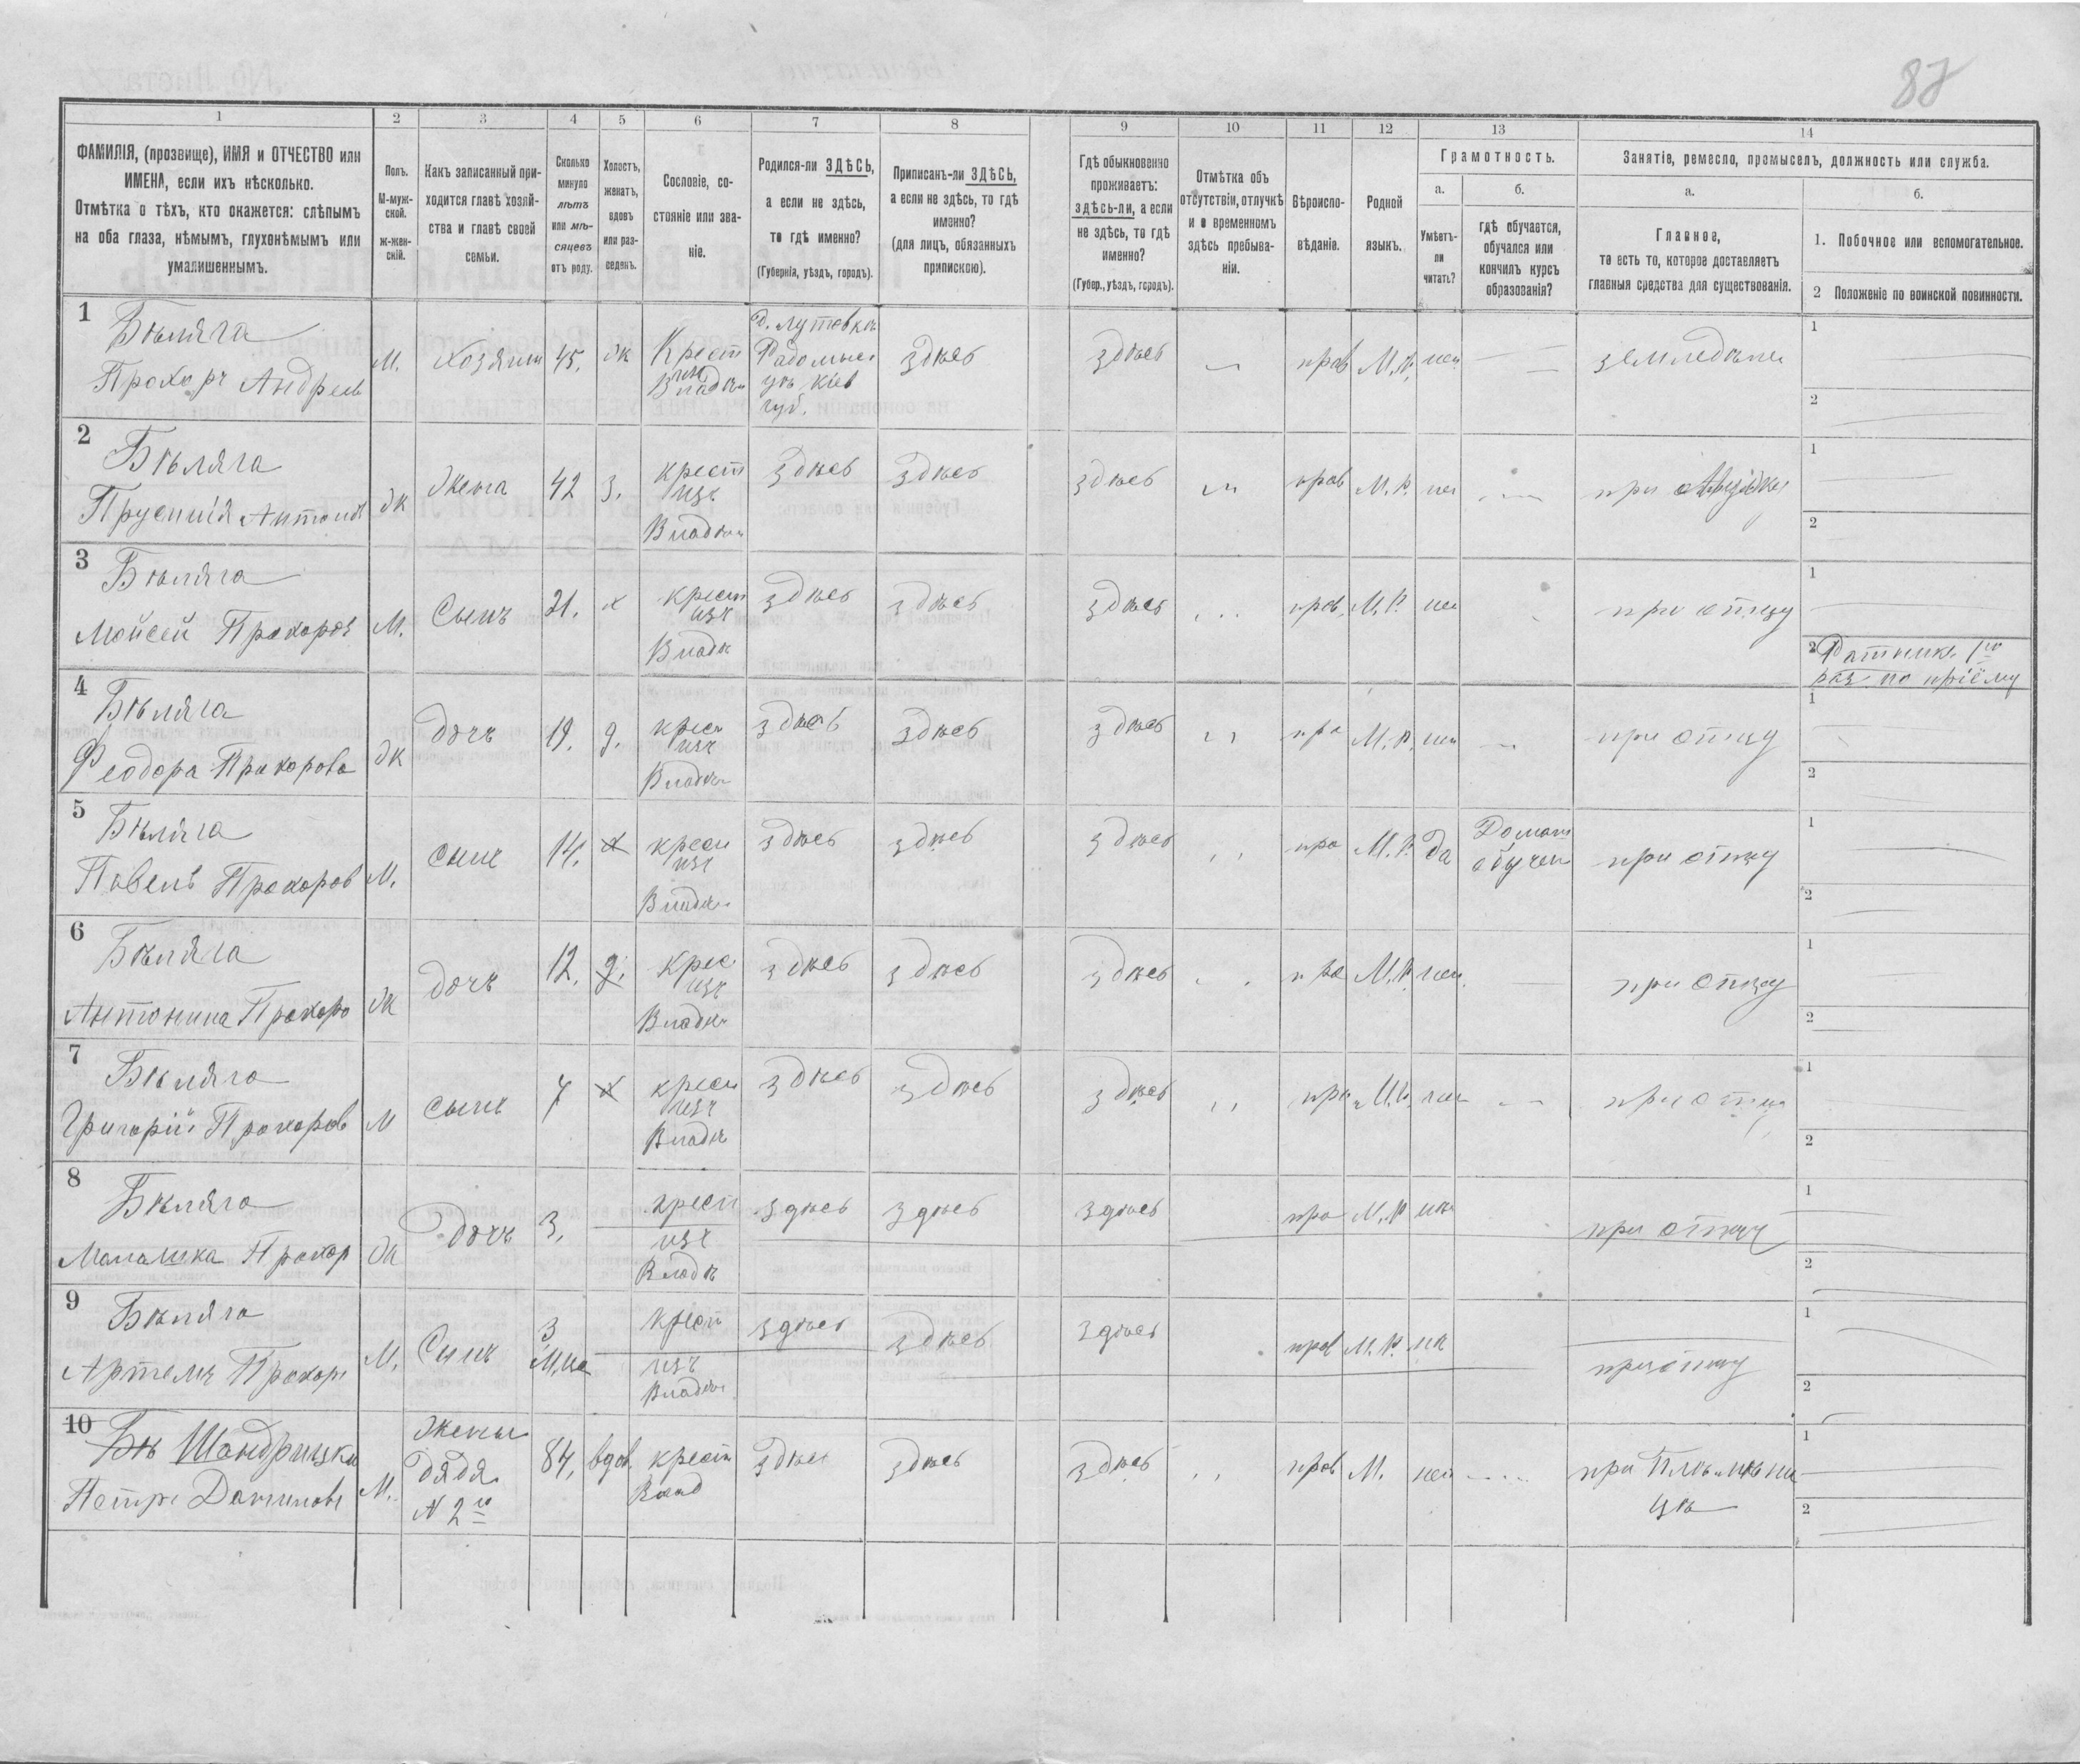 87
1 2 3 4 5 6 7 8 9 10 11 12 13 14
ФАМИЛІЯ, (прозвище), ИМЯ и ОТЧЕСТВО или
ИМЕНА, если ихъ нѣсколько.
Отмѣтка о тѣхъ, кто окажется: слѣпымъ
на оба глаза, нѣмымъ, глухонѣмымъ или
умалишеннымъ.
Полъ.
М-муж-
ской.
ж-жен-
скій.
Какъ записанный при-
ходится главѣ хозяй-
ства и главѣ своей
семьи.
Сколько
минуло
лѣтъ
или мѣ-
сяцевъ
отъ роду.
Холостъ,
женатъ,
вдовъ
или раз-
веденъ.
Сословіе, со-
стояніе или зва-
ніе.
Родился-ли ЗДѢСЬ,
а если не здѣсь,
то гдѣ именно?
(Губернія, уѣздъ, городъ).
Приписанъ-ли ЗДѢСЬ,
а если не здѣсь, то гдѣ
именно?
(для лицъ, обязанныхъ
припискою).
Гдѣ обыкновенно
проживаетъ:
здѣсь-ли, а если
не здѣсь, то гдѣ
именно?
(Губер., уѣздъ, городъ).
Отмѣтка объ
отсутствіи, отлучкѣ
и о временномъ
здѣсь пребыва-
ніи.
Вѣроиспо-
вѣданіе.
Родной
языкъ.
Грамотность.
а.
Умѣетъ-
ли
читать?
б.
гдѣ обучается,
обучался или
кончилъ курсъ
образованія?
Занятіе, ремесло, промыселъ, должность или служба.
а.
Главное,
то есть то, которое доставляетъ
главныя средства для существованія.
б.
1. Побочное или вспомогательное.
2 Положеніе по воинской повинности.
1
Бѣляга
Прохоръ Андреев
М. хозяин 45. ж Крест
изъ
Владѣл
Радомыс.
уѣз Кіев
губ.
здѣсь здѣсь прав М.Р. нет земледѣлец
1
2
2
Бѣляга
ж жена 42 з. крест
изъ
Владѣл
здѣсь здѣсь здѣсь прав М.Р. нет при
1
2
3
Бѣляга
Мойсей Прохоров
М. Сынъ 21. х крест
изъ
Владѣ
здѣсь здѣсь здѣсь прав. М.Р. нет при отцу
1
2 Ратник 1го
раз. по пріёму
4
Бѣляга
Феодора Прохорова
ж дочъ 19. д. крест
изъ
Владѣл
здѣсь здѣсь здѣсь пра М.Р. нет при отцу
1
2
5
Бѣляга
Павелъ Прохоров
М. сынъ 14. х крест
изъ
Владѣ
здѣсь здѣсь здѣсь пра М.Р. да Домаш
обучен при отцу
1
2
6
Бѣляга
Антонина Прохоро
ж дочъ 12. д. Крес
изъ
Владѣл
здѣсь здѣсь здѣсь пра М.Р. нет при отцу
1
2
7
Бѣляга
Григорій Прохоров
М сынъ 7 х крест
изъ
Владѣ
здѣсь здѣсь здѣсь пра М.Р. нет при отцу
1
2
8
Бѣляга
Малашка Прохор
ж дочъ 3. крест
изъ
Владѣ
здѣсь здѣсь здѣсь пра М.Р. не при отцу
1
2
9
Бѣляга
Артемъ Прохор
М. Сынъ 3
М.ца
Крест
изъ
Владѣл
здѣсь здѣсь здѣсь прав М.Р. не при отцу
1
2
10
Бѣ
Петръ Данилов
М. Жены
дядя
N 2го
84, вдов. крест
Влад
здѣсь здѣсь здѣсь прав М. нет при Племѣнни
цѣ
1
2